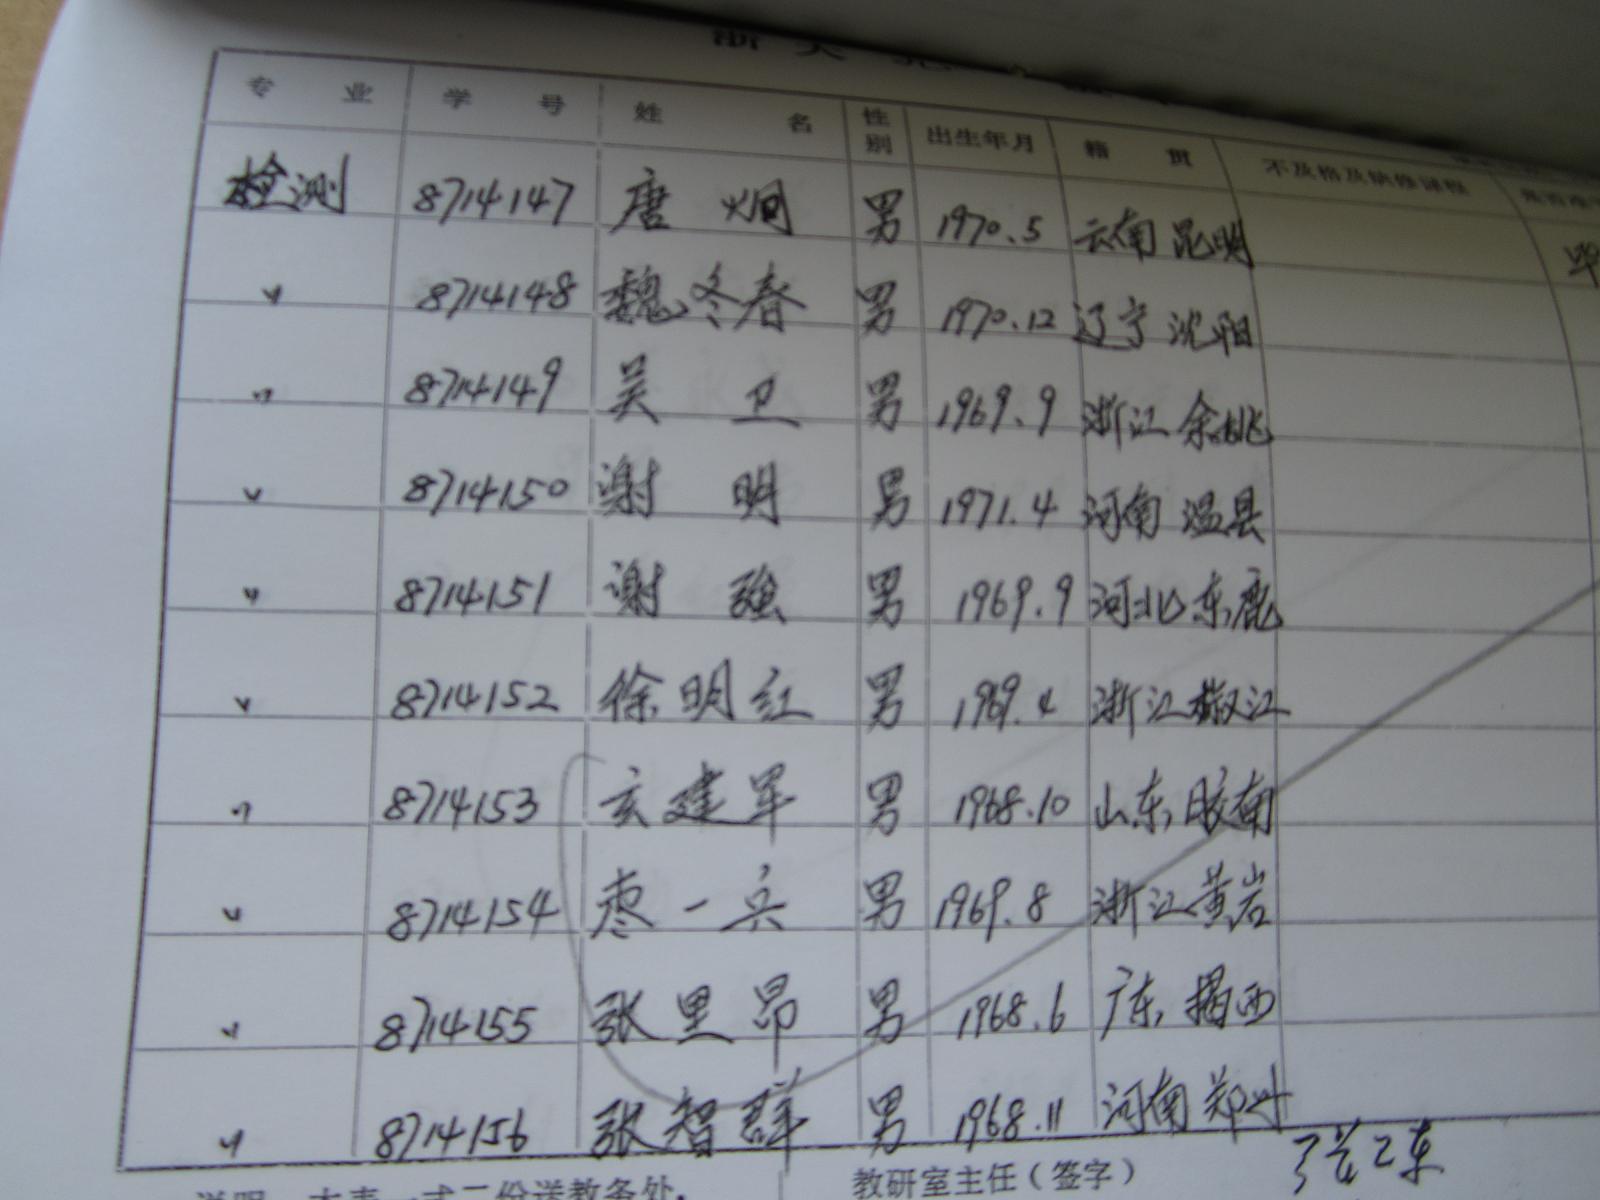 专业 学号 姓名 性别 出生年月 籍贯 不及格及缺修课程
检测 8714147 唐炯 男 1970.5 云南昆明 毕
〃 8714148 魏冬春 男 1970.12 辽宁沈阳
〃 8714149 吴卫 男 1969.9 浙江余姚
〃 8714150 谢明 男 1971.4 河南温县
〃 8714151 谢强 男 1969.9 河北束鹿
〃 8714152 徐明红 男 1969.4 浙江椒江
〃 8714153 玄建军 男 1968.10 山东胶南
〃 8714154 枣一兵 男 1969.8 浙江黄岩
〃 8714155 张里昂 男 1968.6 广东揭西
〃 8714156 张智群 男 1968.11 河南郑州
说明：本表一式二份送教务处. 教研室主任（签字）